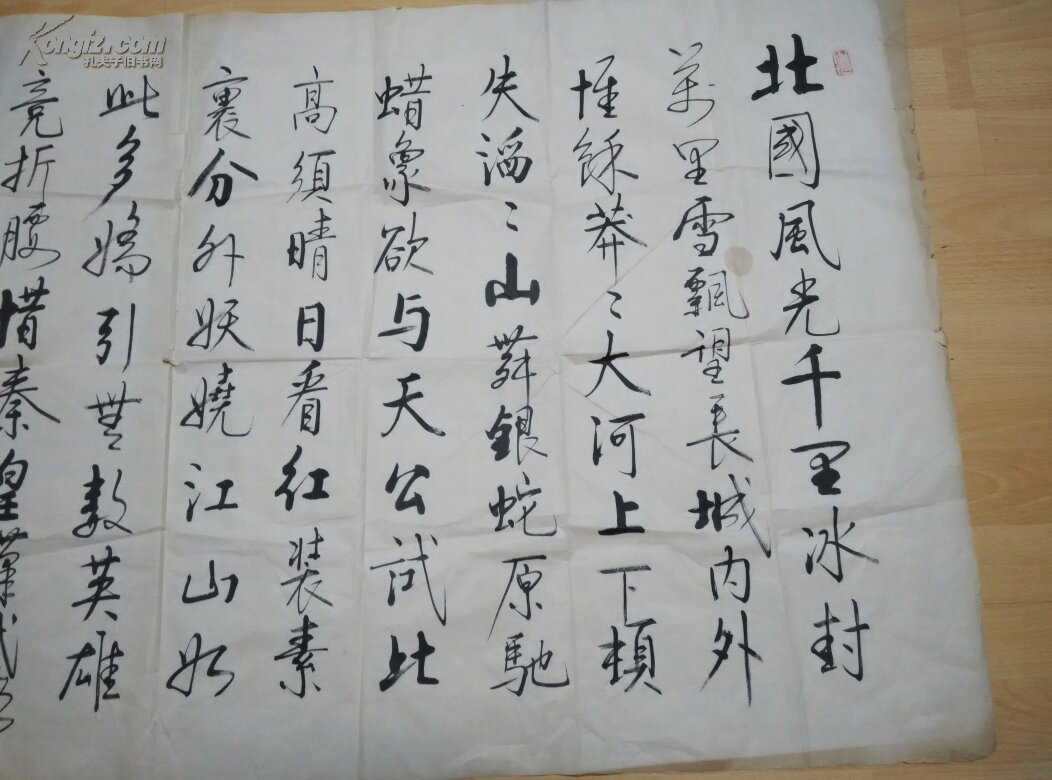 北國風光千里冰封
萬里雪飄望長城内外
惟餘莽〻大河上下頓
失滔〻山舞銀蛇原馳
蜡象欲与天公試比
高須晴日看红装素
裹分外妖嬈江山如
此多嬌引無数英雄
竞折腰惜秦皇漢武
Kongfz.com
孔夫子旧书网